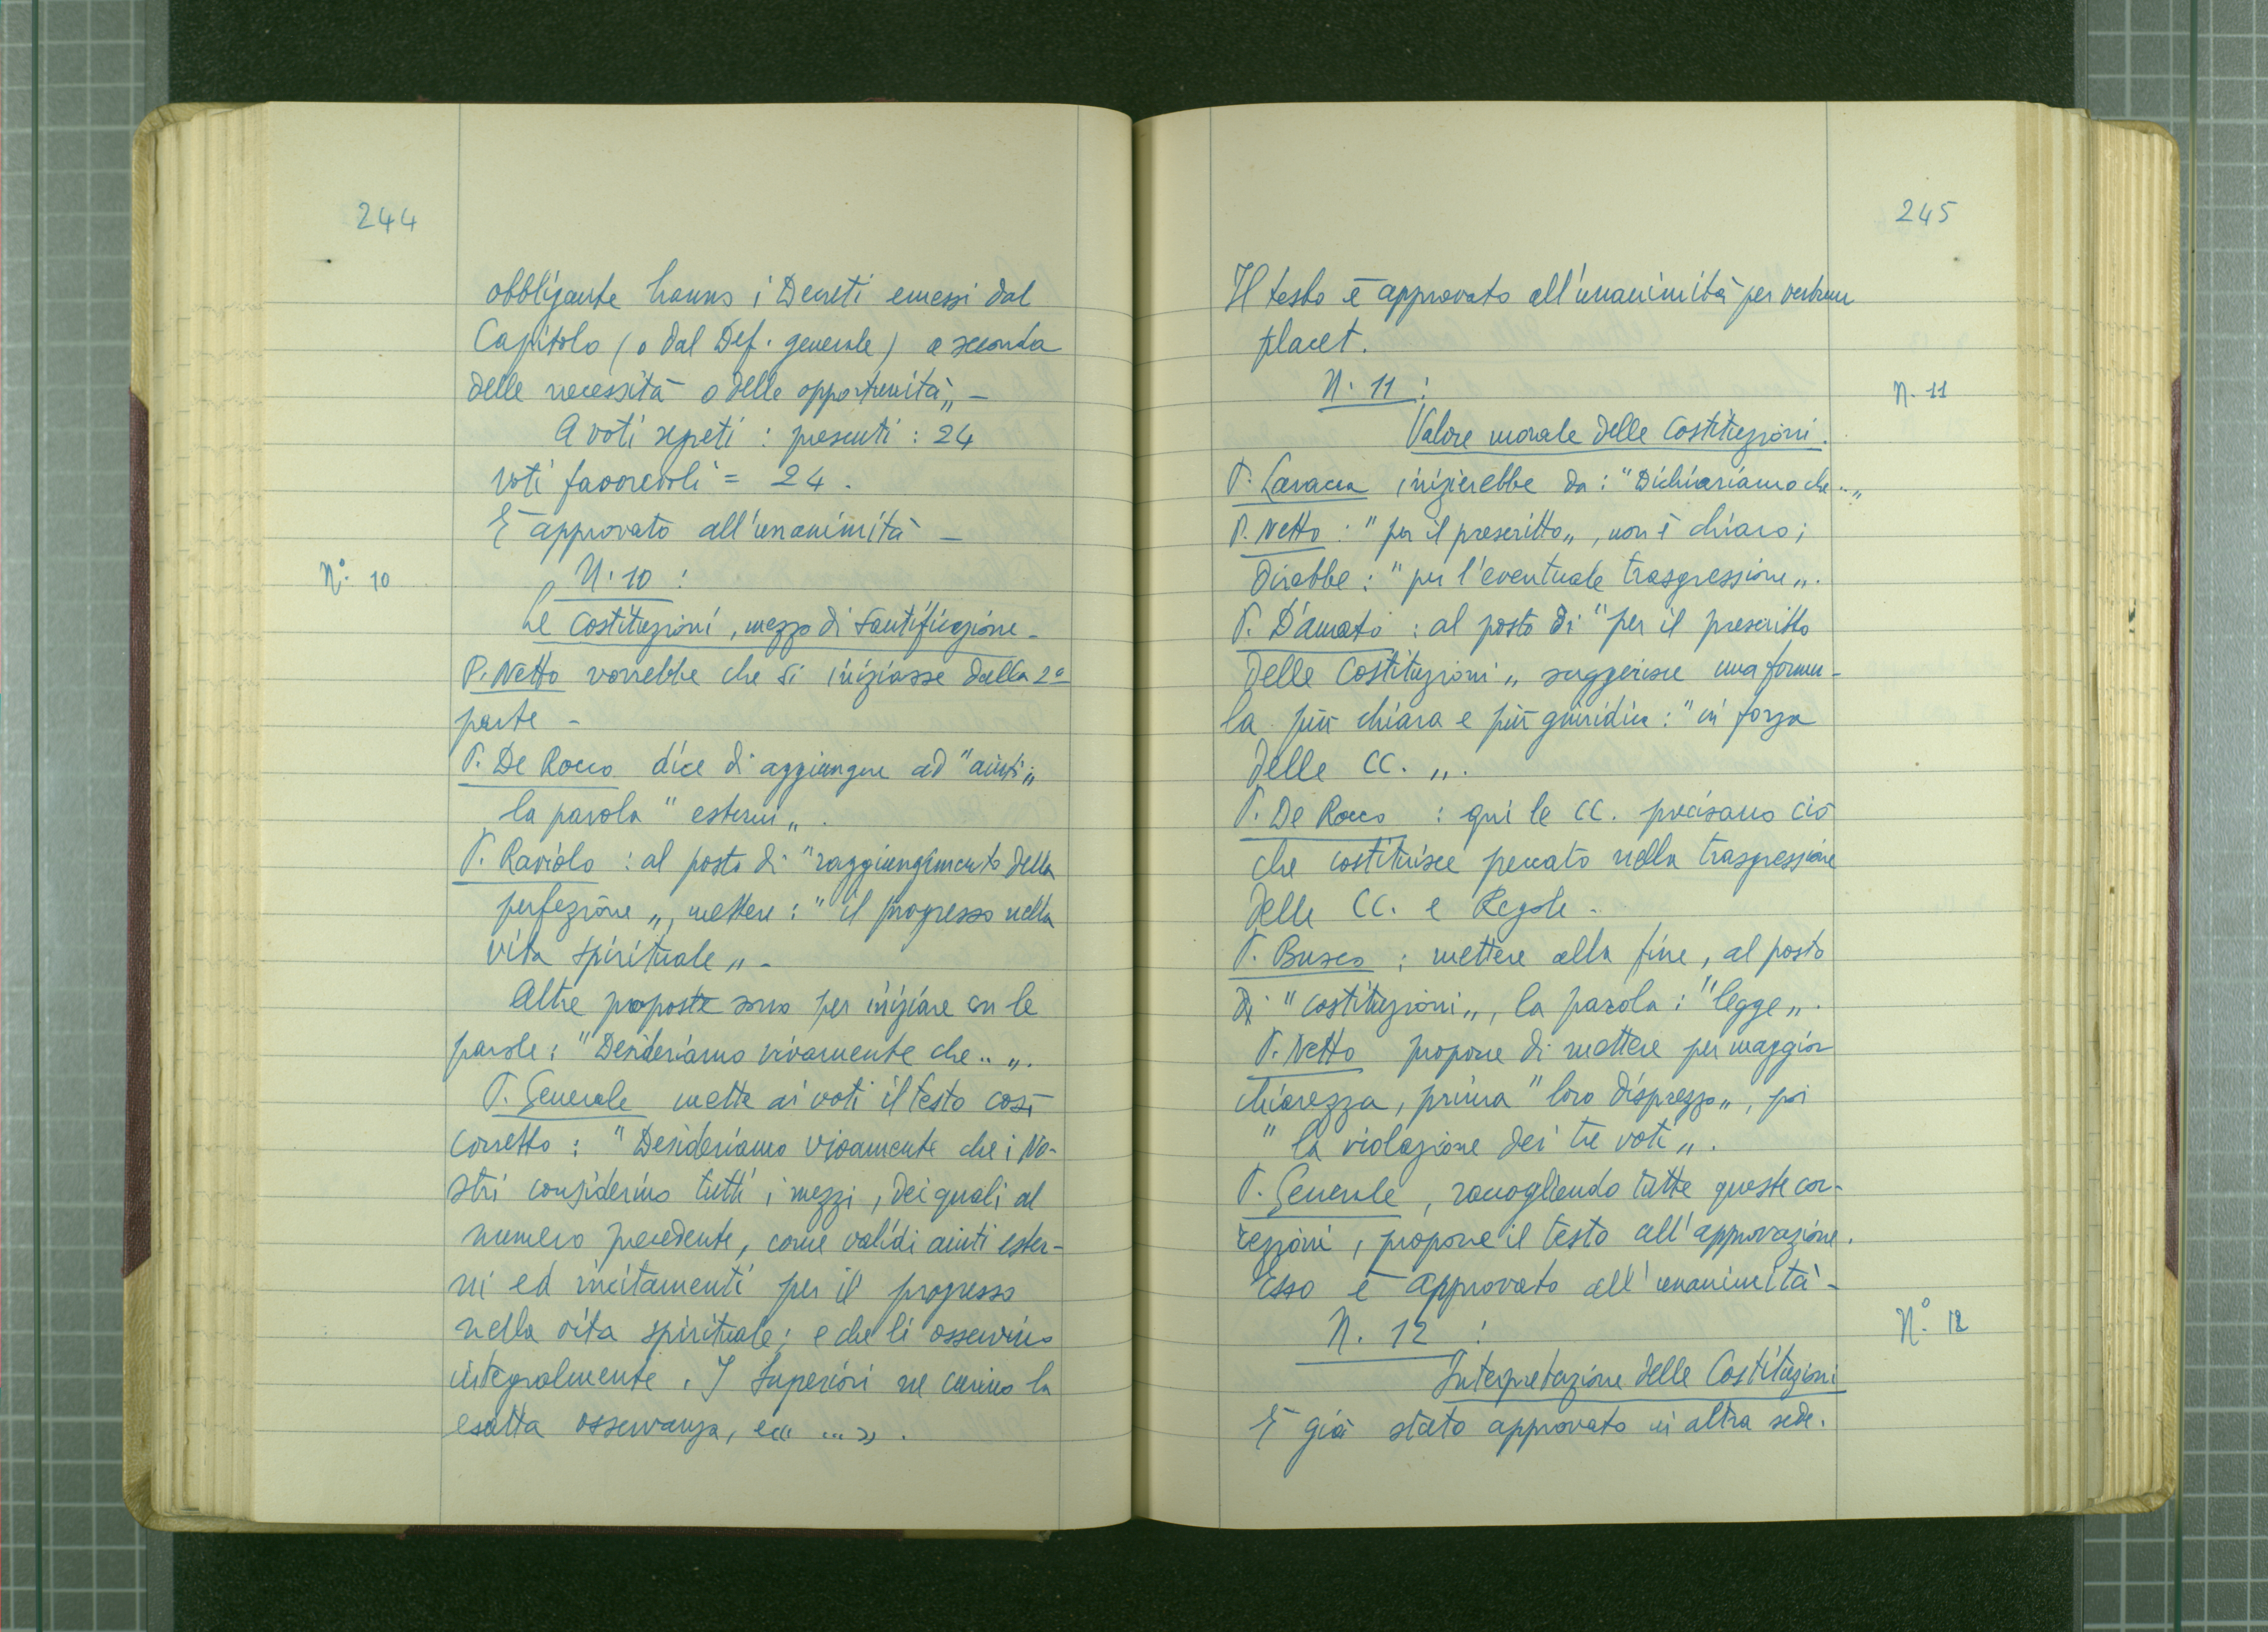 244
obbligante hanno i Decreti emessi dal
Capitolo (o dal Def. generale) a seconda
delle necessità o delle opportunità„ -
A voti segreti : presenti : 24
voti favorevoli = 24 .
È approvato all'unanimità -
N° 10
N. 10 :
Le Costituzioni, mezzo di Santificazione -
P. Netto vorrebbe che si iniziasse dalla 2ª
parte -
P. De Rocco dice di aggiungere ad "aiuti„
la parola "esterni„ .
P. Raviolo : al posto di "raggiungimento della
perfezione„, mettere : "il progresso nella
vita spirituale„ -
Altre proposte sono per iniziare con le
parole : "Desideriamo vivamente che ..„.
P. Generale mette ai voti il testo così
corretto : "Desideriamo vivamente che i No-
stri considerino tutti i mezzi, dei quali al
numero precedente, come validi aiuti ester-
ni ed incitamenti per il progresso
nella vita spirituale; e che li osservino
integralmente. I Superiori ne curino la
esatta osservanza, ecc ...„ .
245
Il testo è approvato all'unanimità per verbum
placet.
N. 11 :
N. 11
Valore morale delle Costituzioni.
P. inizierebbe da : "Dichiariamo che ..„
P. Netto : "per il prescritto„, non è chiaro;
direbbe : "per l'eventuale trasgressione„.
P. D'Amato : al posto di "per il prescritto
delle Costituzioni„ suggerisce una formu-
la più chiara e più giuridica : "in forza
delle CC. „.
P. De Rocco : qui le CC. precisano ciò
che costituisce peccato nella trasgressione
delle CC. e Regole -
P. Busco : mettere alla fine, al posto
di "costituzioni„, la parola : "legge„.
P. Netto propone di mettere per maggior
chiarezza, prima "loro disprezzo„, poi
"la violazione dei tre voti„.
P. Generale, raccogliendo tutte queste cor-
rezioni, propone il testo all'approvazione.
Esso è approvato all'unanimità -
N. 12 :
N° 12
Interpretazione delle Costituzioni
È già stato approvato in altra sede.